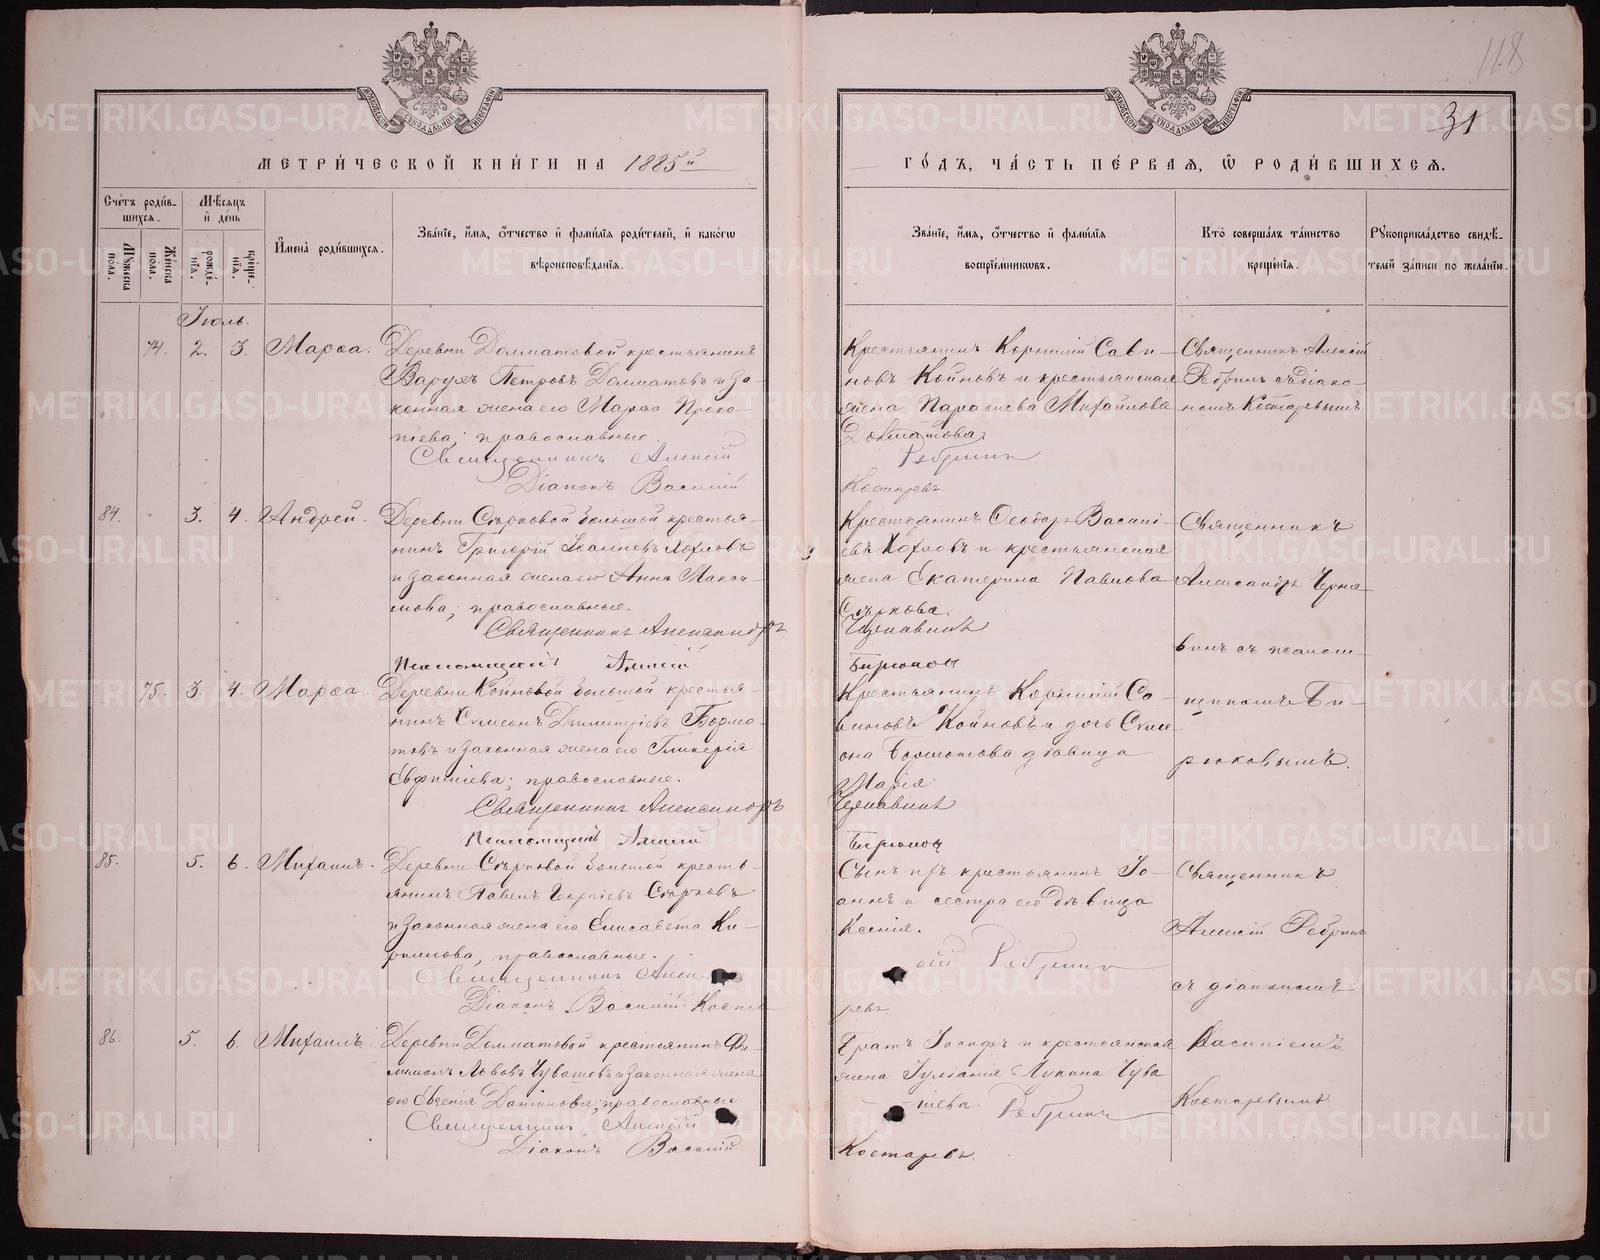 118
31
МЕТРИ́ЧЕСКОЙ КНИ́ГИ НА 1885й
ГО́ДЪ, ЧА́СТЬ ПЕ́РВАѦ, Ѡ РОДИ́ВШИХСѦ.
Сче́тъ роди́в-
шихсѧ.
Мѣ́сѧцъ
и҆ де́нь
Мꙋ́жеска
по́ла.
Же́нска
по́ла.
рожде́-
нїѧ.
креще́-
нїѧ.
И҆мена̀ роди́вшихсѧ.
Зва́нїе, и҆́мѧ, ѻ҆́тчество и҆ фами́лїѧ роди́телей, и҆ како́гѡ
вѣроисповѣ́данїѧ.
Зва́нїе, и҆́мѧ, ѻ҆́тчество и҆ фами́лїѧ
воспрїе́мникѡвъ.
Кто̀ соверша́лъ та́инство
креще́нїѧ.
Рꙋкоприкла́дство свидѣ́-
телей за́писи по жела́нїю.
Іюль.
74. 2. 3. Марѳа.
Деревни Долматовой крестьянинъ
Варулъ Петровъ Долматовъ и за-
конная жена его Марѳа Проко-
піева; православные.
Священникъ Алексій
Діаконъ Василій
Крестьянинъ Корнилій Сави-
новъ Койновъ и крестьянская
жена Параскева Михайлова
Долматова.
Ребринъ
Костаревъ.
Священникъ Алексій
Ребринъ съ діако-
номъ Костаревымъ
84. 3. 4. Андрей.
Деревни Сѣрковой большой крестья-
нинъ Григорій Іоанновъ Хохловъ
и законная жена его Анна Макси-
мова; православные.
Священникъ Александръ
Псаломщикъ
Крестьянинъ Ѳеодоръ Василі-
евъ Хохловъ и крестьянская
жена Екатерина Павлова
Сѣркова.
Бирюков
Священникъ
Александръ Черна
винъ съ псалом-
щикомъ Би-
рюковымъ.
75. 3. 4. Марѳа.
Деревни Койновой большой крестья-
нинъ Симеонъ Димитріевъ Бормо-
товъ и законная жена его Гликерія
Евфиміева; православные.
Священникъ Александръ
Псаломщикъ
Крестьянинъ Корнилій Са-
виновъ Койновъ и дочь Симе
она Бормотова дѣвица
Марія
Бирюков
85. 5. 6. Михаилъ.
Деревни Сѣрковой большой кресть-
янинъ Павелъ Георгіевъ Сѣрковъ
и законная жена его Елисавета Ки-
рилова, православные.
Священникъ Алек-
Діаконъ Василій Коста
Сынъ ихъ крестьянинъ Іо-
аннъ и сестра его дѣвица
Ксенія.
сій Ребринъ
ревъ
Священникъ
Алексій Ребринъ
съ діакономъ
Василіемъ
Костаревымъ
86. 5. 6. Михаилъ.
Деревни Долматовой крестьянинъ Фи-
лимонъ Львовъ Чувашевъ и законная жена
его Евгенія Данилова; православные
Священникъ Алексій
Діаконъ Василій
Братъ Іосифъ и крестьянская
жена Іуліанія Лукина Чува
шева. Ребринъ
Костаревъ.